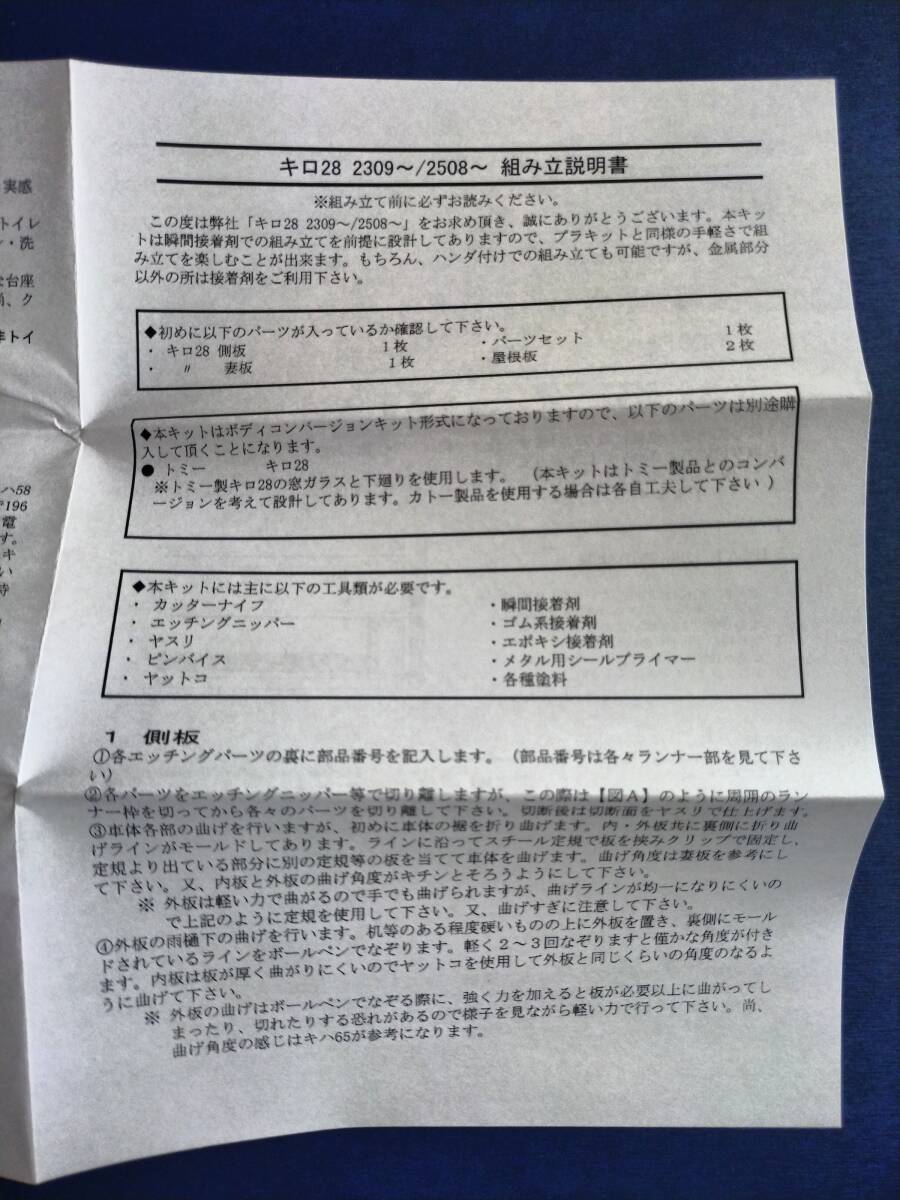 実感
トイレ
・洗
な台座
、ク
トイ
ハ58
196
電
す。
キ
い
時
キロ28 2309～/2508～ 組み立説明書
※組み立て前に必ずお読みください。
この度は弊社「キロ28 2309～/2508～」をお求め頂き、誠にありがとうございます。本キッ
トは瞬間接着剤での組み立てを前提に設計してありますので、プラキットと同様の手軽さで組
み立てを楽しむことが出来ます。もちろん、ハンダ付けでの組み立ても可能ですが、金属部分
以外の所は接着剤をご利用下さい。
◆初めに以下のパーツが入っているか確認して下さい。
・ キロ28 側板 1枚 ・パーツセット 1枚
・ 〃 妻板 1枚 ・屋根板 2枚
◆本キットはボディコンバージョンキット形式になっておりますので、以下のパーツは別途購
入して頂くことになります。
● トミー キロ28
※トミー製キロ28の窓ガラスと下廻りを使用します。 (本キットはトミー製品とのコンバ
ージョンを考えて設計してあります。カトー製品を使用する場合は各自工夫して下さい )
◆本キットには主に以下の工具類が必要です。
・ カッターナイフ ・瞬間接着剤
・ エッチングニッパー ・ゴム系接着剤
・ ヤスリ ・エポキシ接着剤
・ ピンバイス ・メタル用シールプライマー
・ ヤットコ ・各種塗料
1 側板
①各エッチングパーツの裏に部品番号を記入します。(部品番号は各々ランナー部を見て下さ
い)
②各パーツをエッチングニッパー等で切り離しますが、この際は【図A】のように周囲のラン
ナー枠を切ってから各々のパーツを切り離して下さい。切断後は切断面をヤスリで仕上げます。
③車体各部の曲げを行いますが、初めに車体の裾を折り曲げます。内・外板共に裏側に折り曲
げラインがモールドしてあります。ラインに沿ってスチール定規で板を挟みクリップで固定し、
定規より出ている部分に別の定規等の板を当てて車体を曲げます。曲げ角度は妻板を参考にし
て下さい。又、内板と外板の曲げ角度がキチンとそろうようにして下さい。
※ 外板は軽い力で曲がるので手でも曲げられますが、曲げラインが均一になりにくいの
で上記のように定規を使用して下さい。又、曲げすぎに注意して下さい。
④外板の雨樋下の曲げを行います。机等のある程度硬いものの上に外板を置き、裏側にモール
ドされているラインをボールペンでなぞります。軽く2～3回なぞりますと僅かな角度が付き
ます。内板は板が厚く曲がりにくいのでヤットコを使用して外板と同じくらいの角度のなるよ
うに曲げて下さい。
※ 外板の曲げはボールペンでなぞる際に、強く力を加えると板が必要以上に曲がってし
まったり、切れたりする恐れがあるので様子を見ながら軽い力で行って下さい。尚、
曲げ角度の感じはキハ65が参考になります。